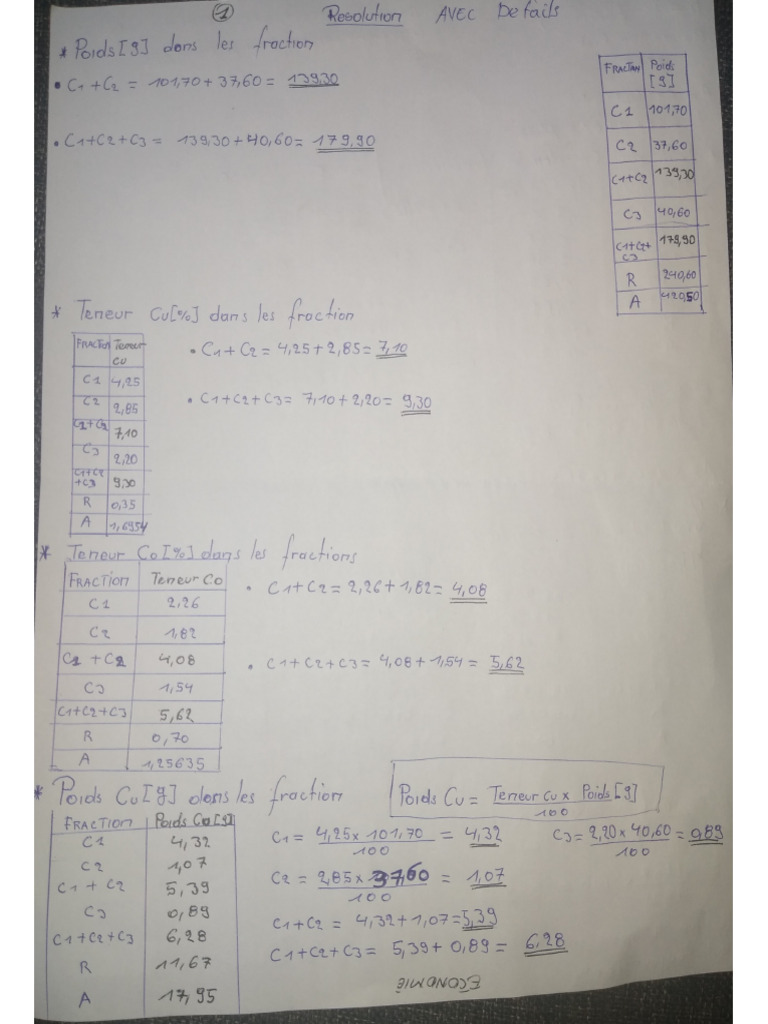 1 Resolution AVEC Details
* Poids [g] dans les fraction
• C1 + C2 = 101,70 + 37,60 = 139,30
• C1+C2+C3 = 139,30+40,60= 179,90
FRACTION Poids [g]
C1 101,70
C2 37,60
C1+C2 139,30
C3 40,60
C1+C2+C3 179,90
R 240,60
A 420,50
* Teneur Cu[%] dans les fraction
FRACTION Teneur Cu
C1 4,25
C2 2,85
C2+C2 7,10
C3 2,20
C1+C2+C3 9,30
R 0,35
A 1,6954
• C1 + C2 = 4,25 + 2,85 = 7,10
• C1+C2+C3= 7,10+2,20= 9,30
* Teneur Co[%] dans les fractions
FRACTION Teneur Co
C1 2,26
C2 1,82
C1 + C2 4,08
C3 1,54
C1+C2+C3 5,62
R 0,70
A 1,25635
• C1+C2 = 2,26+1,82 = 4,08
• C1+C2+C3= 4,08+1,54 = 5,62
* Poids Cu[g] dans les fraction
Poids Cu = Teneur Cu x Poids [g] / 100
FRACTION Poids Cu [g]
C1 4,32
C2 1,07
C1 + C2 5,39
C3 0,89
C1+C2+C3 6,28
R 11,67
A 17,95
C1 = 4,25 x 101,70 / 100 = 4,32
C3 = 2,20 x 40,60 / 100 = 0,89
C2 = 2,85 x 37,60 / 100 = 1,07
C1+C2 = 4,32+1,07=5,39
C1+C2+C3= 5,39+ 0,89 = 6,28
ECONOMIE